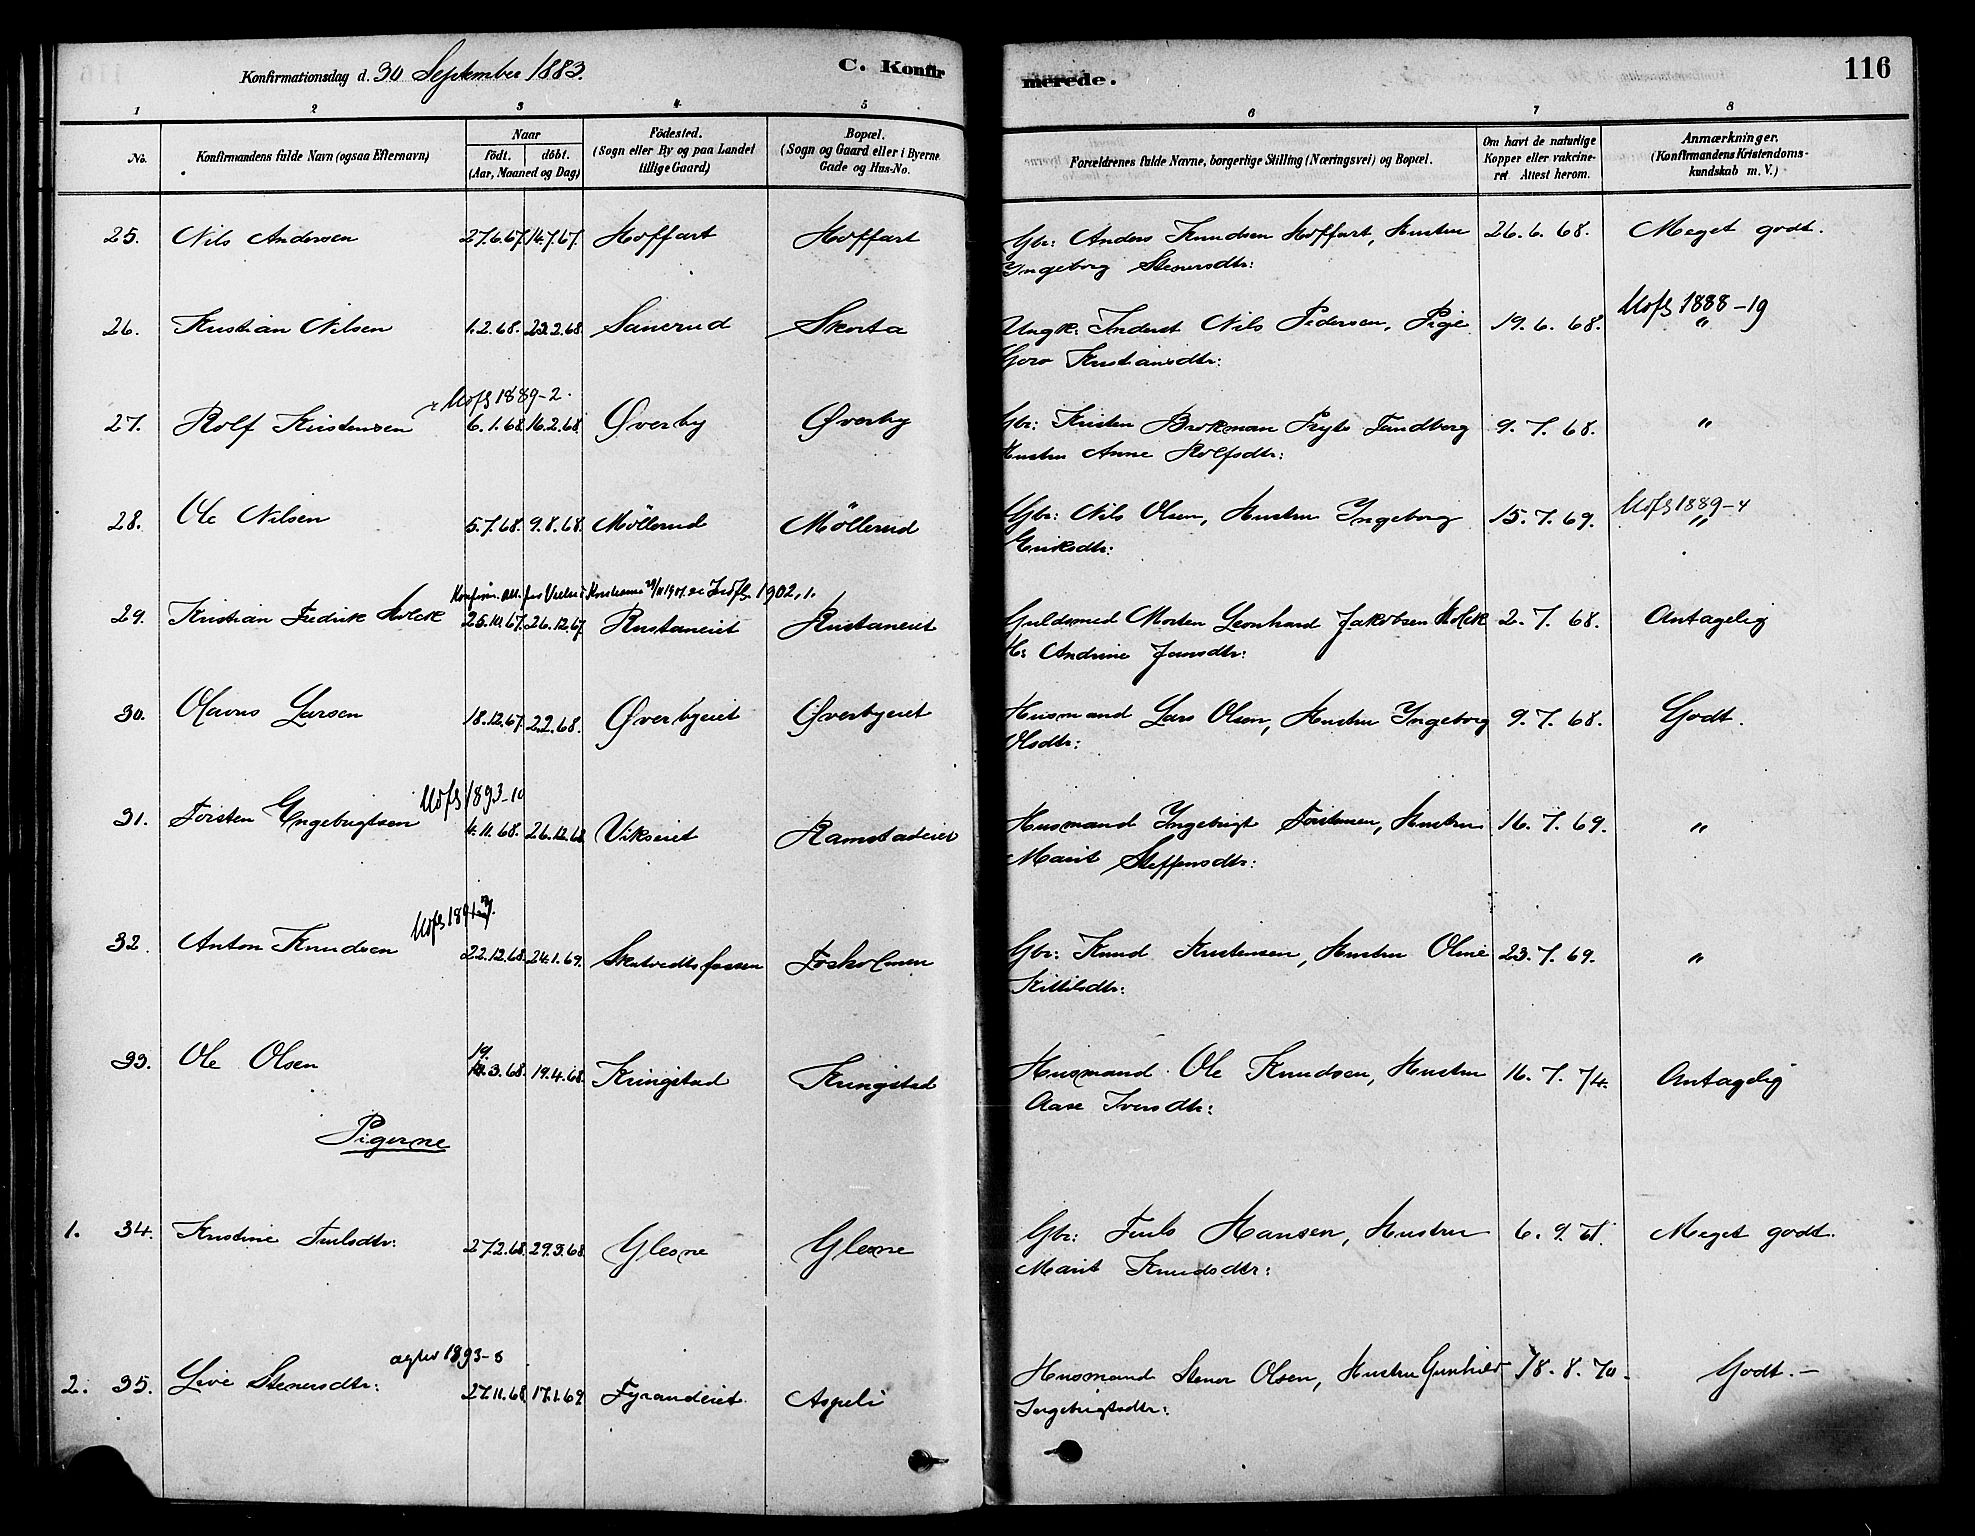 Konfirmationsdag d. 30 September 1883.
C. Konfir
merede.
116
1 2 3 4 5 6 7 8
No.
Konfirmandens fulde Navn (ogsaa Efternavn)
Naar
født. døbt.
(Aar, Maaned og Dag)
Fødested.
(Sogn eller By og paa Landet
tillige Gaard)
Bopæl.
(Sogn og Gaard eller i Byerne
Gade og Hus-No.
Forældrenes fulde Navne, borgerlige Stilling (Næringsvei) og Bopæl.
Om havt de naturlige
Kopper eller vakcine-
ret Attest herom.
Anmærkninger.
(Konfirmandens Kristendoms-
kundskab m. V.)
25. Nils Andersen 27.6.67. 14.7.67. Hoffart Hoffart Gbr: Anders Knudsen Hoffart, Hustru 26.6.68. Meget godt.
Ingeborg Stenersdtr:
Udfl 1888-19
26. Kristian Nilsen 1.2.68. 23.2.68. Sanerud Skorta Ungk: Inderst Nils Pedersen, Pige 19.6.68. "
Goro Kristiansdtr:
Udfl 1889-2.
27. Rolf Kristensen 6.1.68. 16.2.68. Øverby Øverby Gbr: Kristen Brokman Tandberg 9.7.68. "
Hustru Anne Rolfsdtr:
Udfl 1889-4
28. Ole Nilsen 5.7.68. 9.8.68. Möllerud Möllerud Gbr: Nils Olsen, Hustru Ingeborg 15.7.69. "
Eriksdtr:
1902, 1.
29. Kristian Fredrik Holck 25.10.67. 26.12.67. Rustaneiet Rustaneiet Guldsmed Morten Leonhard Jakobsen Holck 2.7.68. Antagelig
H: Andrine Jansdtr:
30. Olavus Larsen 18.12.67. 2.2.68. Øverbyeiet Øverbyeiet Husmand Lars Olsen, Hustru Ingeborg 9.7.68. Godt.
Olsdtr:
Udfl 1893-10
31. Torsten Engebrigtsen 4.11.68. 26.12.68. Vikseiet Ramstadeiet Husmand Ingebrigt Torstensen, Hustru 16.7.69. "
Marit Steffensdtr:
Udfl
32. Anton Knudsen 22.12.68. 24.1.69. Skatvedtsfossen Foskolmen Gbr: Knud Kristensen, Hustru Oline 23.7.69. "
Kittilsdtr:
33. Ole Olsen 19.3.68. 19.4.68. Kringstad Kringstad Husmand Ole Knudsen, Hustru 16.7.74. Antagelig
Aase Iversdtr:
Pigerne
1. 34. Kristine Trulsdtr: 27.2.68. 29.3.68. Glesne Glesne Gbr: Truls Hansen, Hustru 6.9.71. Meget godt.
Marit Knudsdtr:
1893-
2. 35. Live Stenersdtr: 27.11.68. 17.1.69. Fyrandeiet Aspeli Husmand Stener Olsen, Hustru Gunhild 18.8.70. Godt.-
Ingebrigtsdtr: